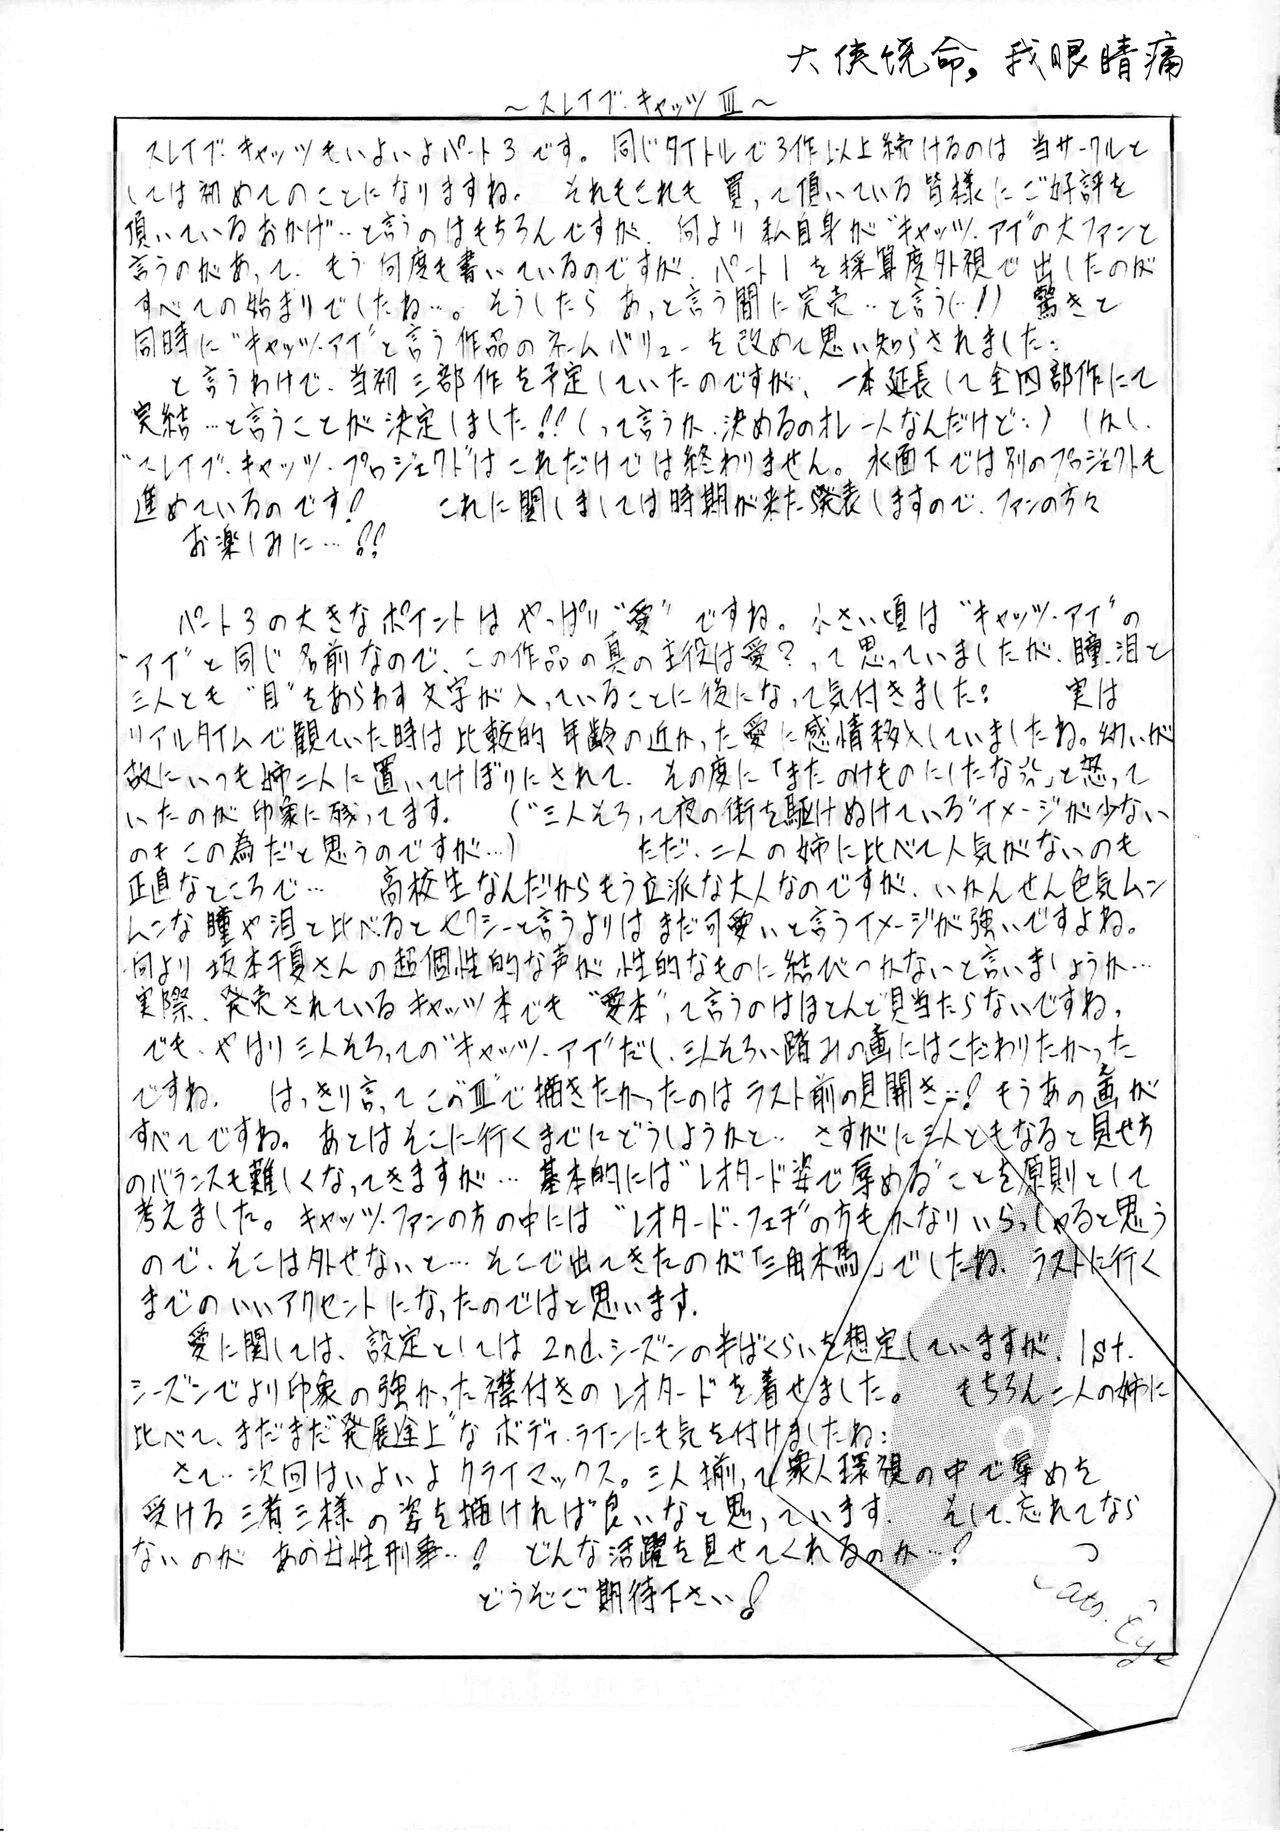 大侠饶命，我眼睛痛
～スレイブ・キャッツⅢ～
スレイブ・キャッツもいよいよパート3です。同じタイトルで3作以上続けるのは当サークルと
しては初めてのことになりますね。それもこれも買って頂いている皆様にご好評を
頂いているおかげ…と言うのはもちろんですが、何より私自身が"キャッツ・アイ"の大ファンと
言うのがあって、もう何度も書いているのですが、パート1を採算度外視で出したのが
すべての始まりでしたね…。そうしたらあっと言う間に完売…と言う(…!)驚きと
同時に"キャッツ・アイ"と言う作品のネームバリューを改めて思い知らされました。
と言うわけで、当初三部作を予定していたのですが、一本延長して全四部作にて
完結…と言うことが決定しました!!(って言うか、決めるのオレ一人なんだけど…)しかし、
"スレイブ・キャッツ・プロジェクト"はこれだけでは終わりません。水面下では別のプロジェクトも
進めているのです!これに関しましては時期が来たら発表しますので、ファンの方々
お楽しみに…!!
パート3の大きなポイントはやっぱり"愛"ですね。小さい頃は"キャッツ・アイ"の
"アイ"と同じ名前なので、この作品の真の主役は愛?って思っていましたが、瞳、泪と
三人とも"目"をあらわす文字が入っていることに後になって気付きました。実は
リアルタイムで観ていた時は比較的年齢の近かった愛に感情移入していましたね。幼いが
故にいつも姉二人に置いてけぼりにされて、その度に「またのけものにしたな」と怒って
いたのが印象に残ってます。("三人そろって夜の街を駆けぬけている"イメージが少ない
のもこの為だと思うのですが…)ただ、二人の姉に比べて人気がないのも
正直なところで…高校生なんだからもう立派な大人なのですが、いかんせん色気ムン
ムンな瞳や泪と比べるとセクシーと言うよりはまだ可愛いと言うイメージが強いですよね。
何より坂本千夏さんの超個性的な声が性的なものに結びつかないと言いましょうか…
実際、発売されているキャッツ本でも"愛本"って言うのはほとんど見当たらないですね。
でも、やはり三人そろっての"キャッツ・アイ"だし、三人そろい踏みの画にはこだわりたかった
ですね。はっきり言ってこの"Ⅲ"で描きたかったのはラスト前の見開き…!もうあの画が
すべてですね。あとはそこに行くまでにどうしようかと…さすがに三人ともなると見せ方
のバランスも難しくなってきますが…基本的には"レオタード姿で辱める"ことを原則として
考えました。キャッツ・ファンの方の中には"レオタード・フェチ"の方もかなりいらっしゃると思う
ので、そこは外せないと…そこで出てきたのが「三角木馬」でしたね。ラストに行く
までのいいアクセントになったのではと思います。
愛に関しては、設定としては2nd.シーズンの半ばくらいを想定していますが、1st.
シーズンでより印象の強かった襟付きのレオタードを着せました。もちろん二人の姉に
比べて、まだまだ"発展途上"なボディ・ラインにも気を付けましたね。
さて…次回はいよいよクライマックス。三人揃って衆人環視の中で辱めを
受ける三者三様の姿を描ければ良いなと思っています。そして、忘れてなら
ないのがあの女性刑事…!どんな活躍を見せてくれるのか…!
どうぞご期待下さい!
Cats・Eye